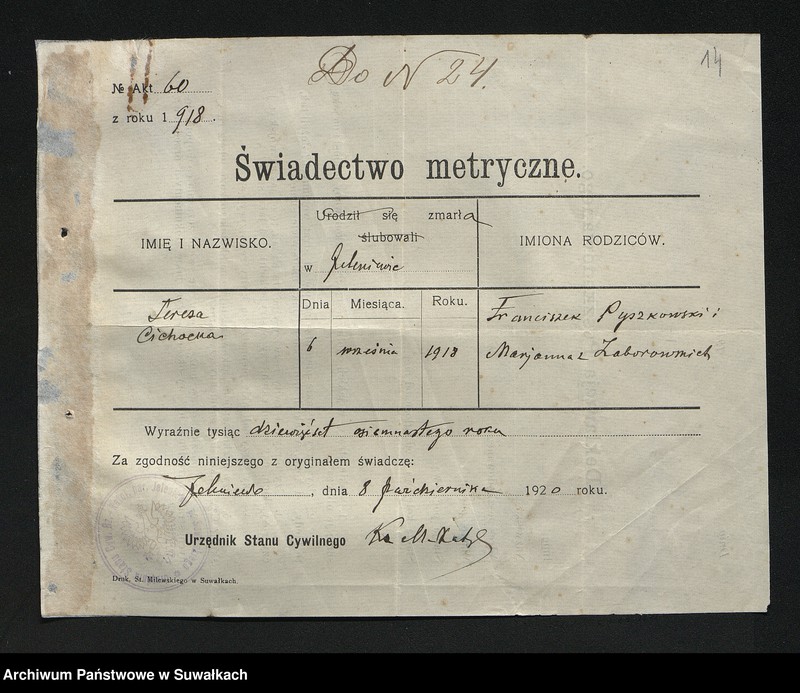 Do N 24.
14
№ Akt 60
z roku 1918.
Świadectwo metryczne.
IMIĘ I NAZWISKO.
Urodził się zmarła
ślubowali
w Jeleniewie
IMIONA RODZICÓW.
Teresa
Cichocka
Dnia Miesiąca. Roku.
6 września 1918
Franciszek Pyszkowski i
Marjanna z Zaborowskich
Wyraźnie tysiąc dziewięćset osiemnastego roku
Za zgodność niniejszego z oryginałem świadczę:
Jeleniewo, dnia 8 Października 1920 roku.
Urzędnik Stanu Cywilnego Ks M.
Druk. St. Milewskiego w Suwałkach.
Archiwum Państwowe w Suwałkach